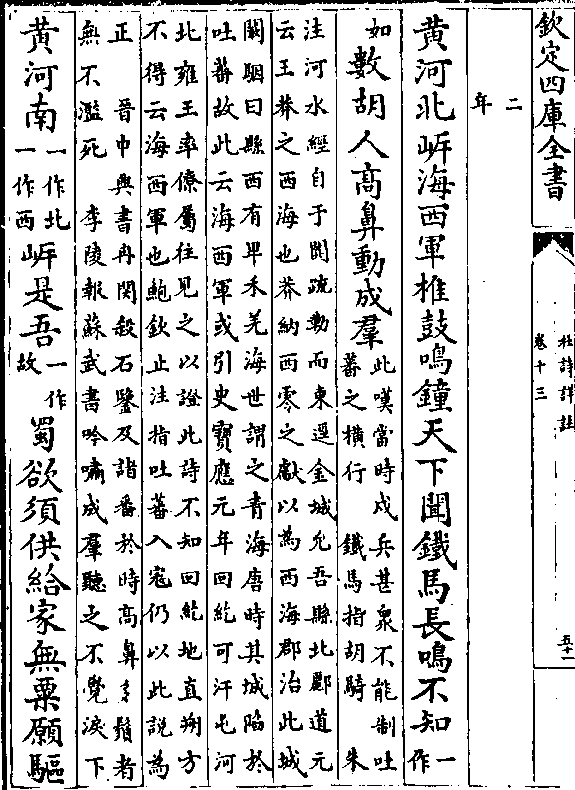 欽定四庫全書
杜詩詳註
卷十三
五十一
二
年
黃河北岍海西軍椎鼓鳴鐘天下聞鐵馬長鳴不知一作
如數胡人高鼻動成羣此嘆當時戍兵甚衆不能制吐
蕃之橫行 鐵馬指胡騎 朱
注河水經自于闐疏勒而東逕金城允吾縣北酈道元
云王莽之西海也莽納西零之獻以為西海郡治此城
闞駰曰縣西有卑禾羌海世謂之青海唐時其城陷於
吐蕃故此云海西軍或引史寶應元年回紇可汗屯河
北雍王率僚屬往見之以證此詩不知回紇地直朔方
不得云海西軍也鮑欽止注指吐蕃入寇仍以此說為
正 晉中興書冉閔殺石鑒及諸番於時高鼻多鬚者
無不濫死 李陵報蘇武書吟嘯成羣聽之不覺淚下
黃河南一作北一作西岍是吾一作故蜀欲須供給家無粟願驅